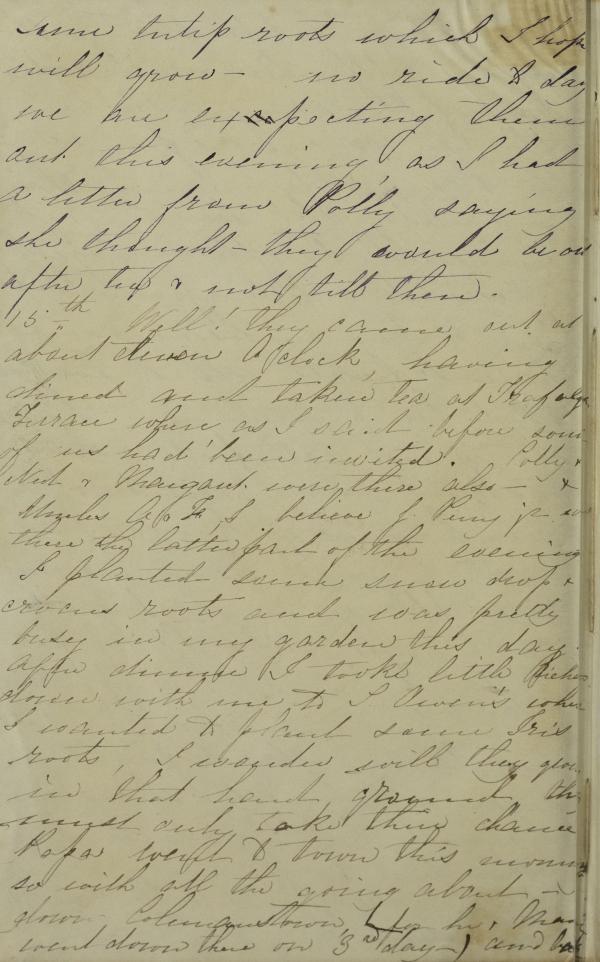 some tulip roots which I hope
will grow — no ride to day
we are expecting them
out this evening, as I had
a letter from Polly saying
she thought — they would be out
after tea & not till then.
15th Well! they came out at
about eleven O'Clock, having
dined and taken tea at Trafalgar
Terrace where as I said before some
of us had been invited. Polly &
Ned & Margaret were there also — &
Uncles A & F, I believe J. Perry jr was
there the latter part of the evening
I planted some snow drop &
crocus roots and was pretty
busy in my garden this day.
After dinner I took little
down with me to S Owen's where
I wanted to plant some Iris
roots, I wonder will they grow
in that hard ground, they
must only take their chance
Papa went to town this morning
so with all the going about —
down Colemanstown, (for he &
went down there on 3rd day —) and